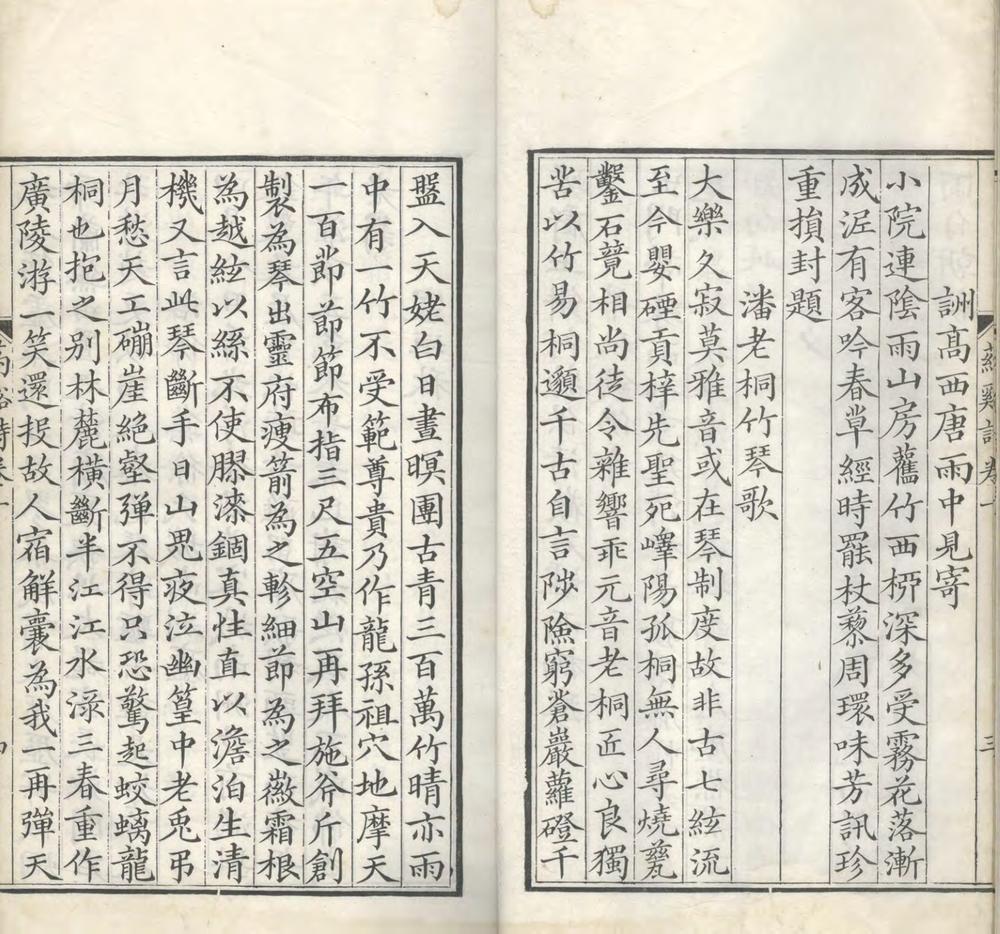 詶高西唐雨中見寄
小院連陰雨山房舊竹西桞深多受霧花落漸
成泥有客吟春草經時罷杖藜周環味芳訊珍
重損封題
潘老桐竹琴歌
大樂久寂莫雅音或在琴制度故非古七絃流
至今嬰磹貢梓先聖死嶧陽孤桐無人尋燒甏
鑿石競相尚徒令雜響乖元音老桐匠心良獨
苦以竹易桐邈千古自言陟險窮蒼巖蘿磴千
盤入天姥白日晝暝團古青三百萬竹晴亦雨
中有一竹不受範尊貴乃作龍孫祖穴地摩天
一百節節節布指三尺五空山再拜施斧斤創
製為琴出靈府瘦箭為之軫細節為之徽霜根
為越絃以絲不使膠漆錮真性直以澹泊生清
機又言此琴斷手日山鬼夜泣幽篁中老兎弔
月愁天工磞崖絕壑弹不得只恐驚起蛟螭龍
桐也抱之別林麓橫斷半江江水渌三春重作
廣陵游一笑還投故人宿解囊為我一再彈天
三